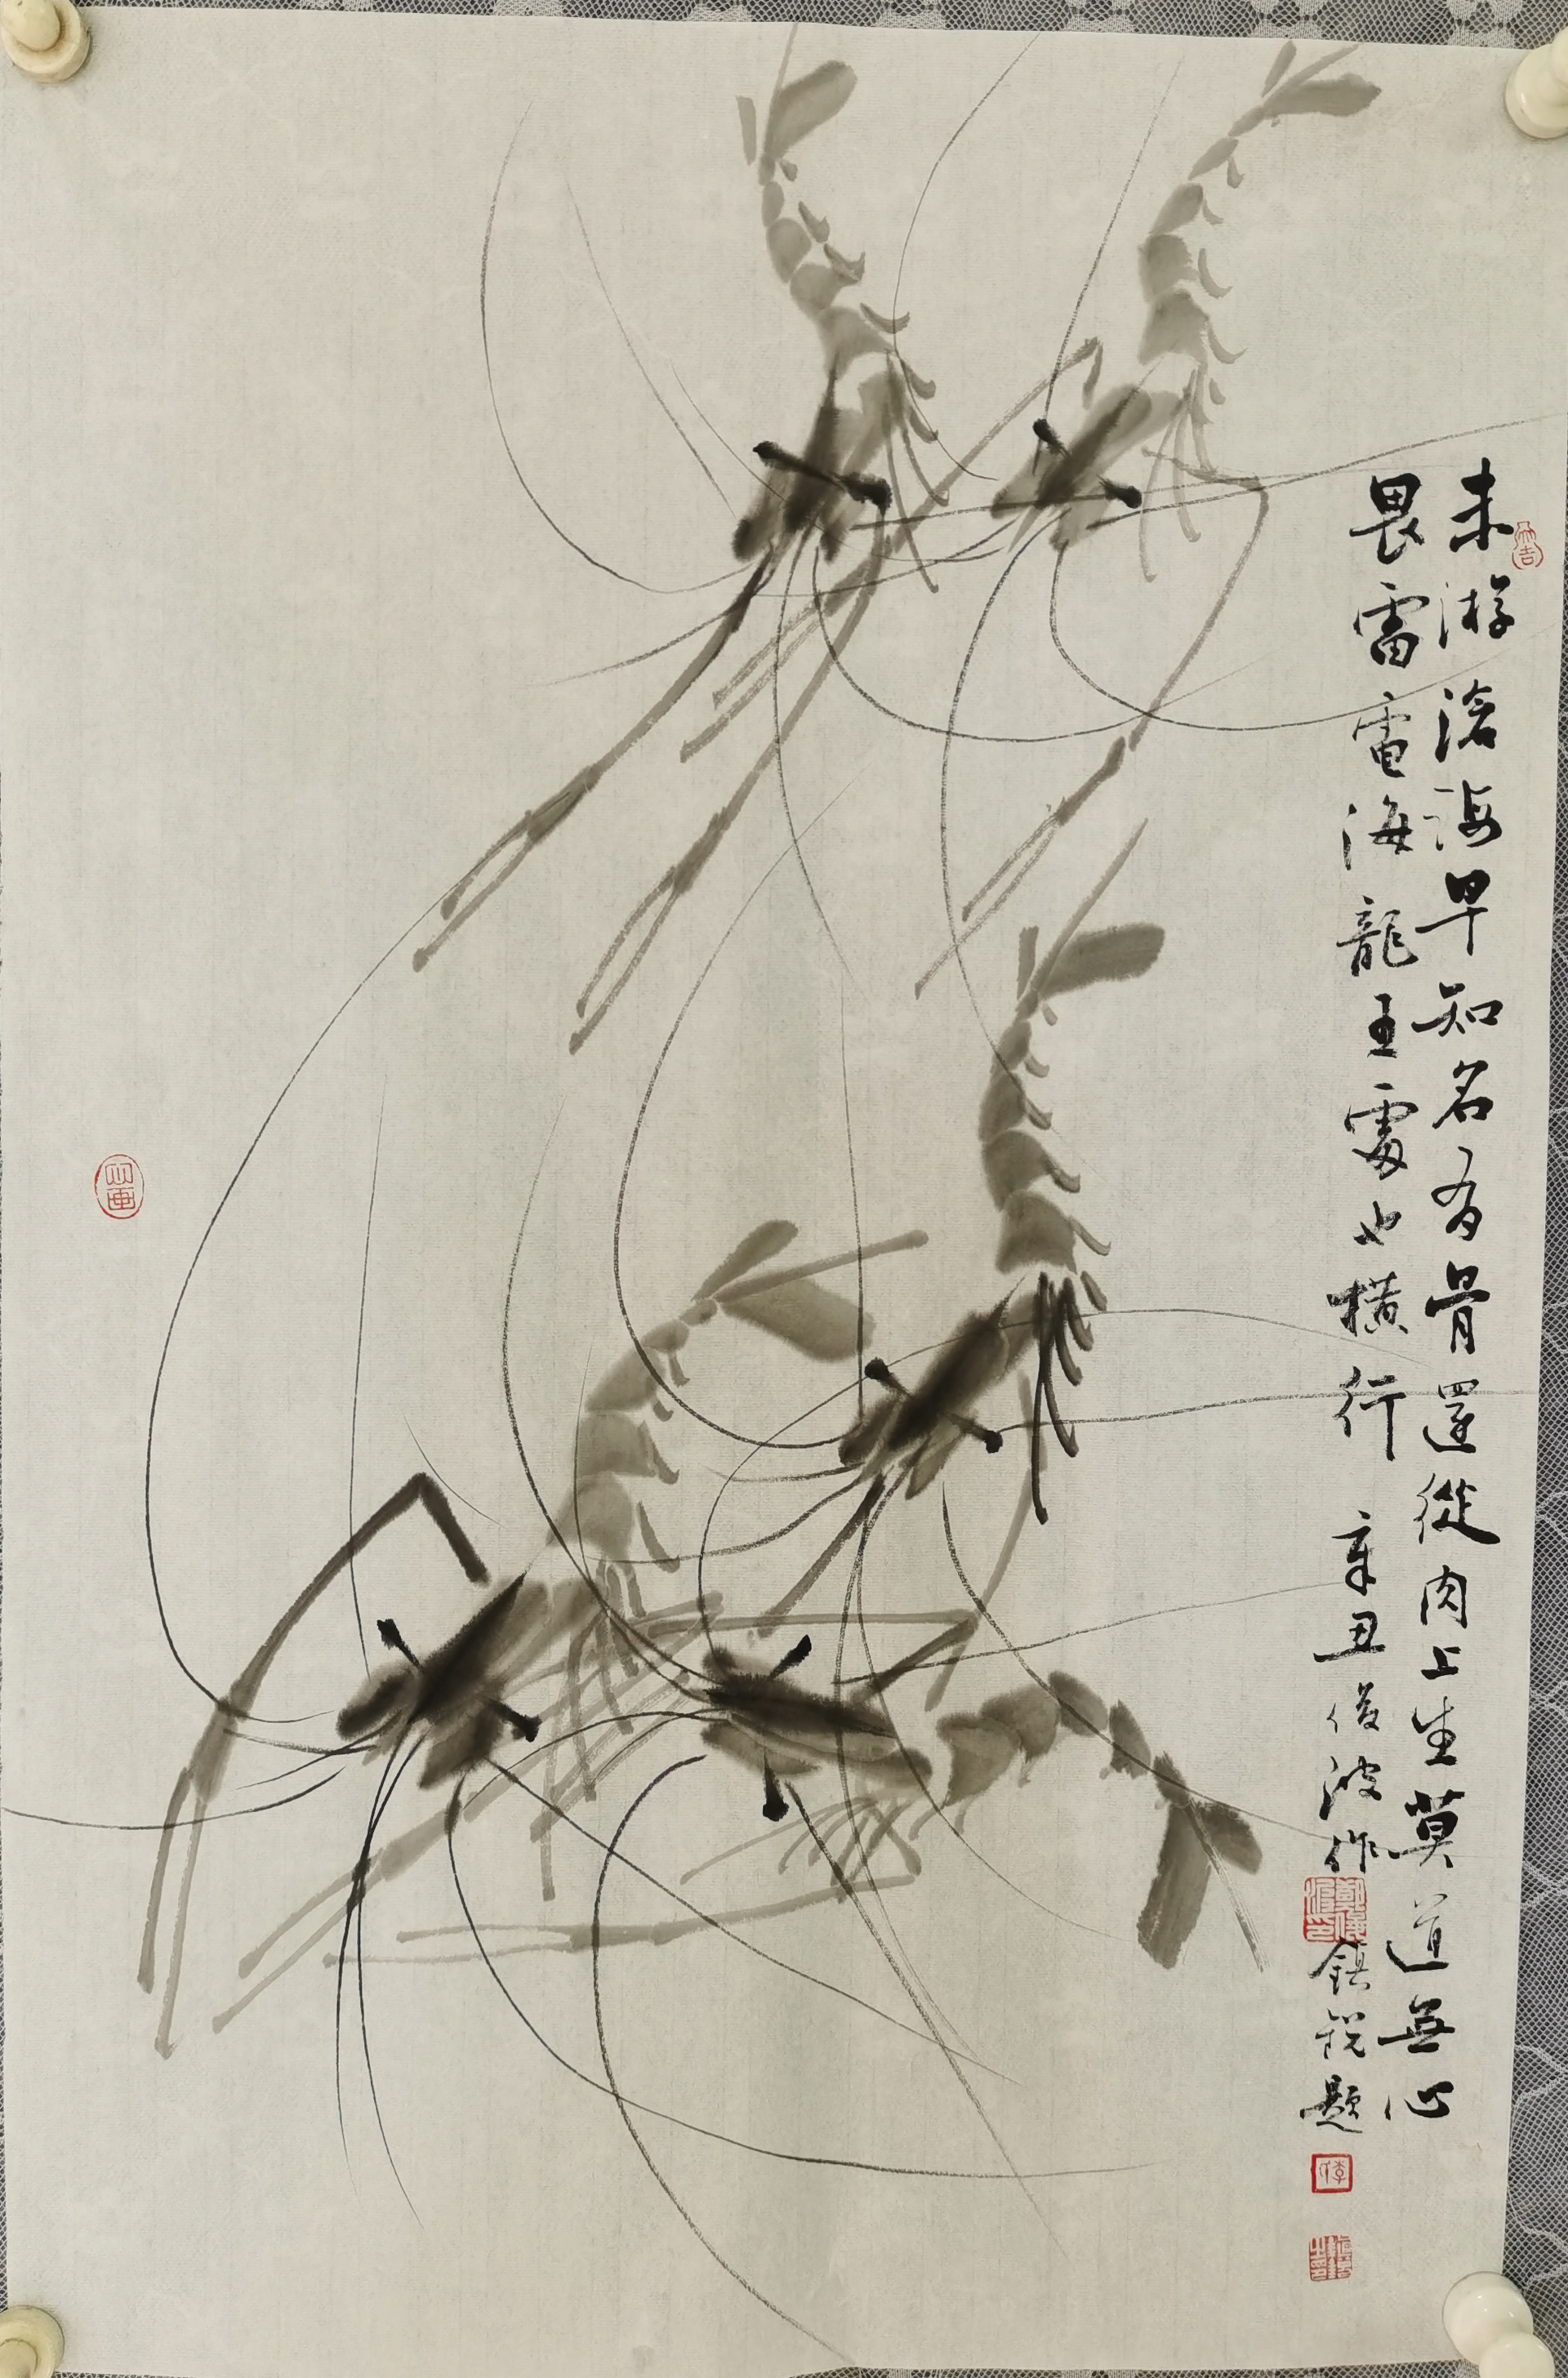 未游滄海早知名有骨還從肉上生莫道無心
畏雷電海龍王處也橫行 辛丑俊波作 鎮銳題
大吉
鄭俊波印
李